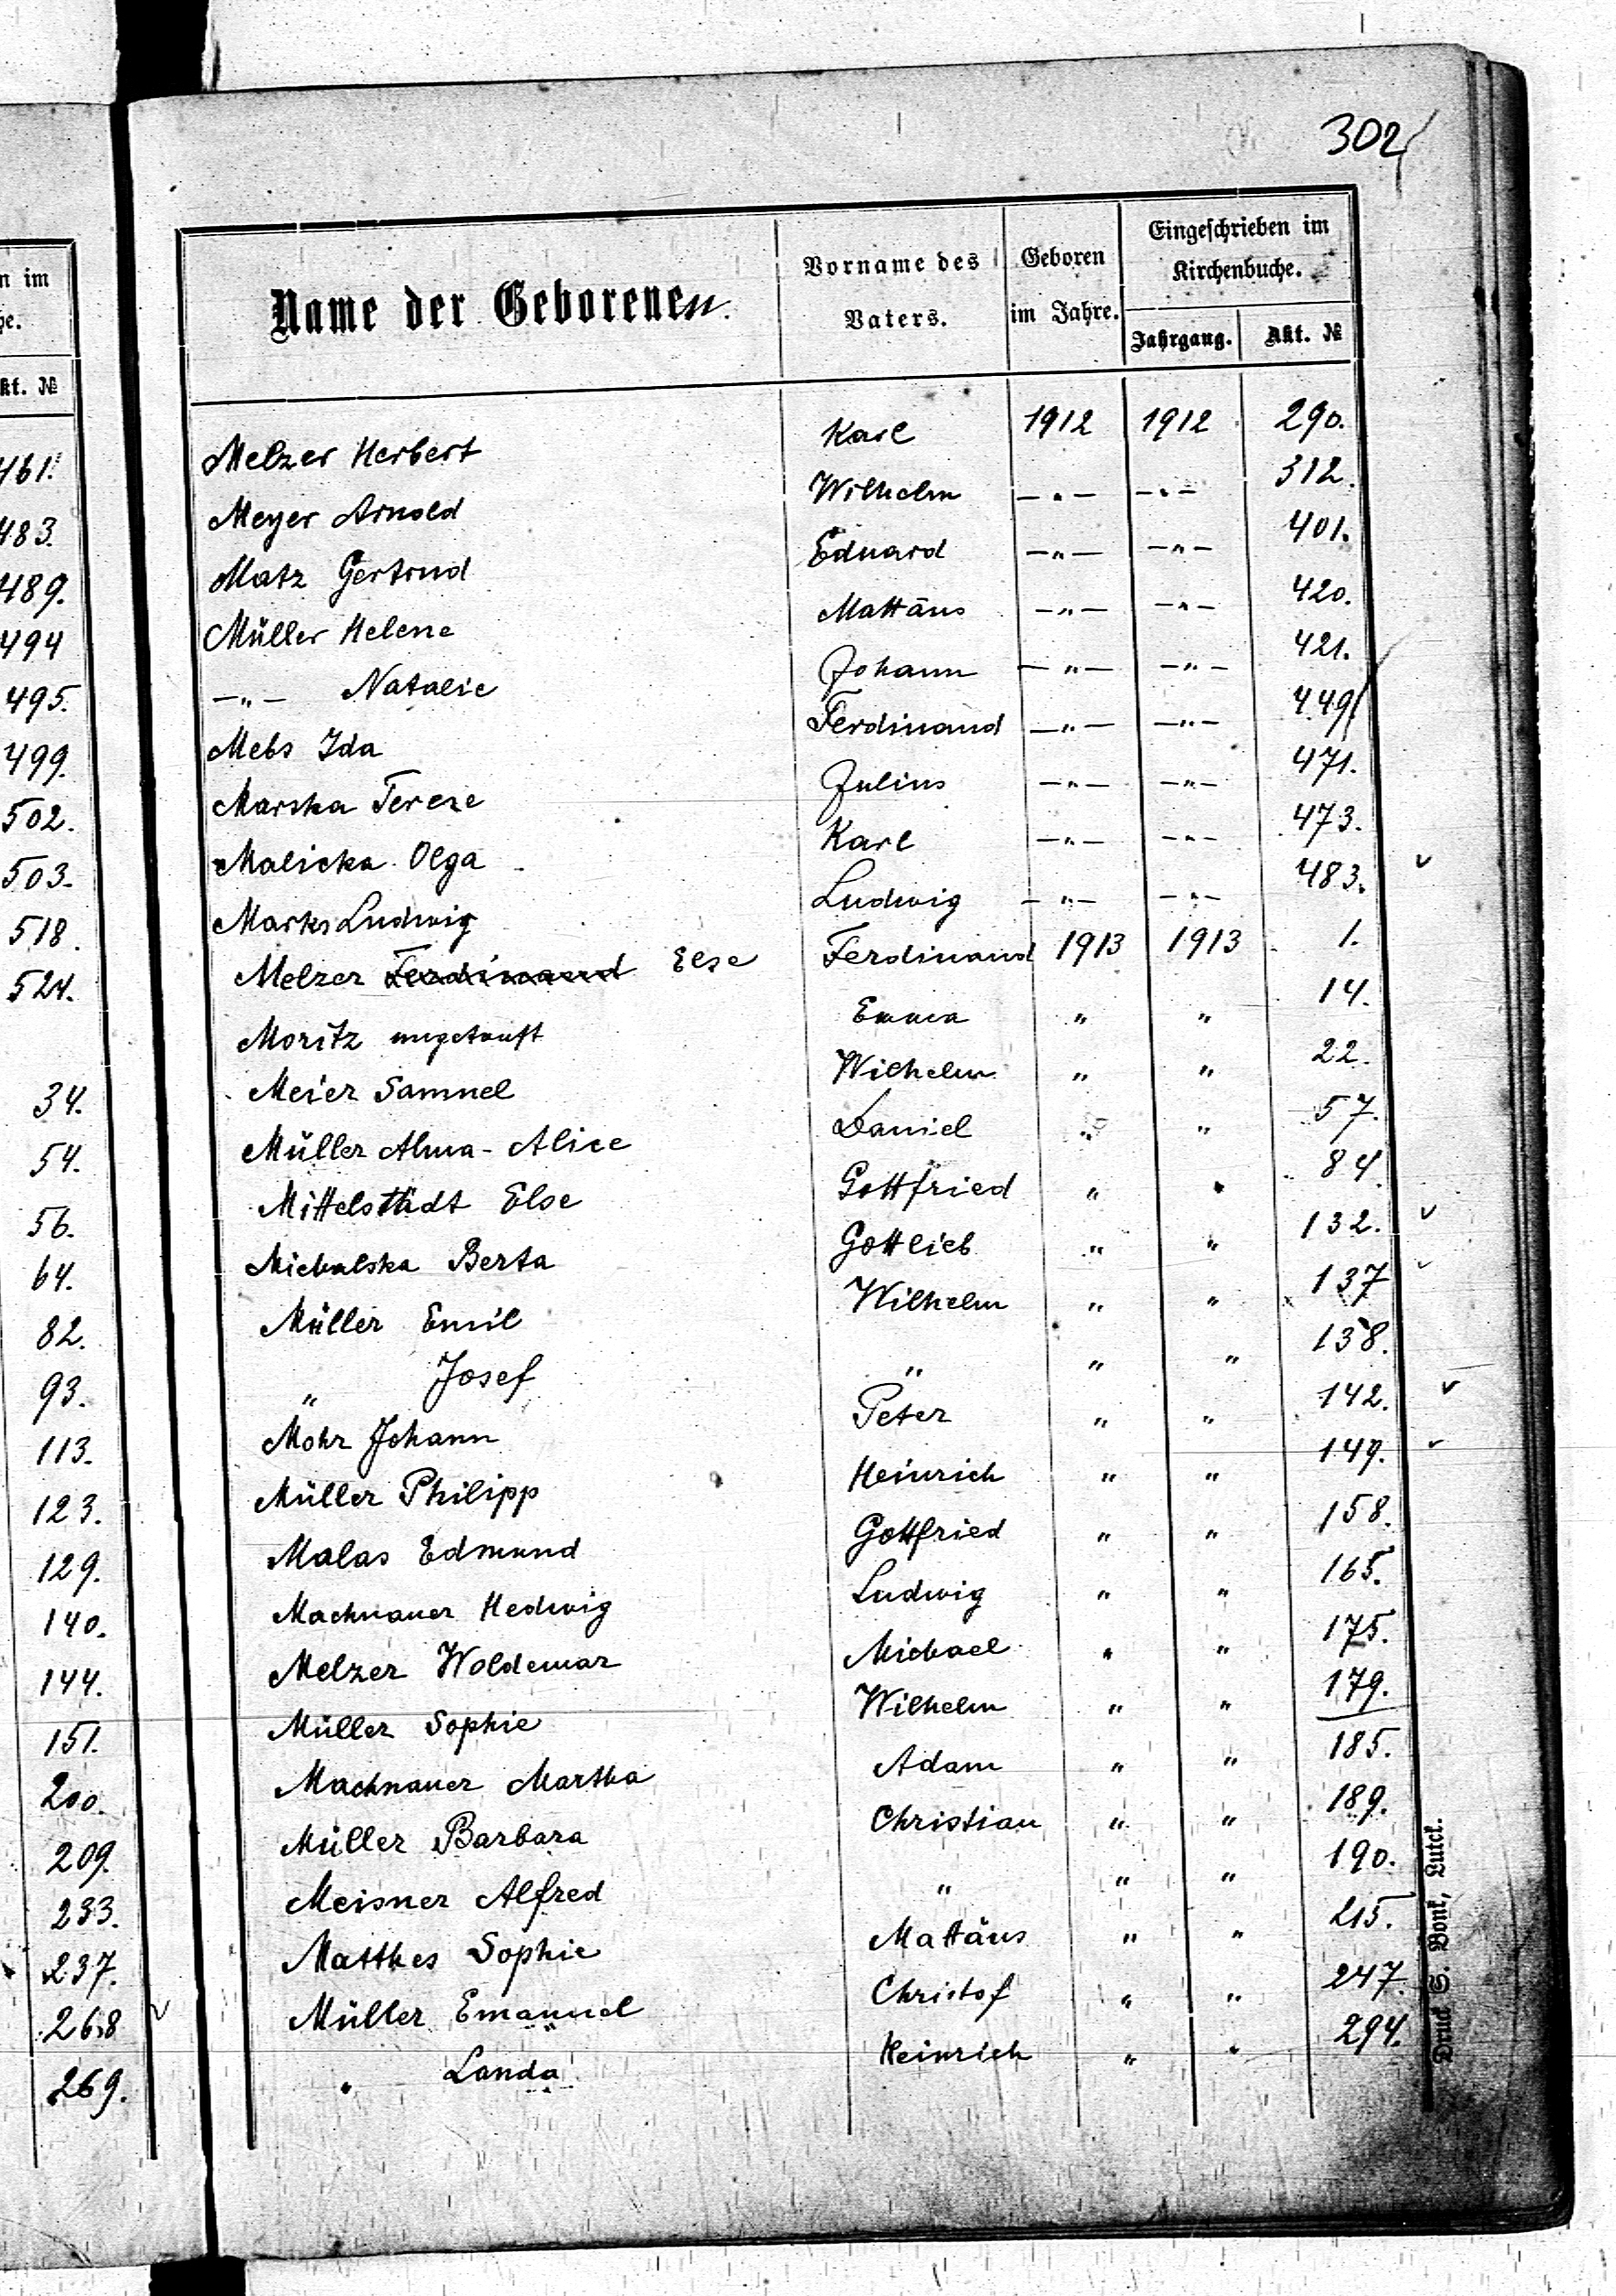 302
n im
he.
kt. №
461.
483.
489.
494
495.
499.
502.
503.
518.
524.
34.
54.
56.
64.
82.
93.
113.
123.
129.
140.
144.
151.
200.
209.
233.
237.
268
269.
Name der Geborenen.
Vorname des Vaters.
Geboren im Jahre.
Eingeschrieben im Kirchenbuche.
Jahrgang. Akt. №
Melzer Herbert Karl 1912 1912 290.
Meyer Arnold Wilhelm —„— —„— 312.
Matz Gertrud Eduard —„— —„— 401.
Müller Helene Mattäus —„— —„— 420.
—„— Natalie Johann —„— —„— 421.
Mebs Ida Ferdinand —„— —„— 449
Marska Terese Julius —„— —„— 471.
Malicka Olga Karl —„— —„— 473.
Marks Ludwig Ludwig —„— —„— 483.
Melzer Ferdinand Else Ferdinand 1913 1913 1.
Moritz ungetauft Emma „ „ 14.
Meier Samuel Wilhelm „ „ 22.
Müller Alma-Alice Daniel „ „ 57.
Mittelstädt Else Gottfried „ „ 84.
Michalska Berta Gottlieb „ „ 132.
Müller Emil Wilhelm „ „ 137
„ Josef „ „ „ 138.
Mohr Johann Peter „ „ 142.
Müller Philipp Heinrich „ „ 149.
Malas Edmund Gottfried „ „ 158.
Machnauer Hedwig Ludwig „ „ 165.
Melzer Woldemar Michael „ „ 175.
Müller Sophie Wilhelm „ „ 179.
Machnauer Martha Adam „ „ 185.
Müller Barbara Christian „ „ 189.
Meisner Alfred „ „ „ 190.
Matthes Sophie Mattäus „ „ 215.
Müller Emanuel Christof „ „ 247.
„ Landa Heinrich „ „ 294.
Druck S. Bonk, Lutck.